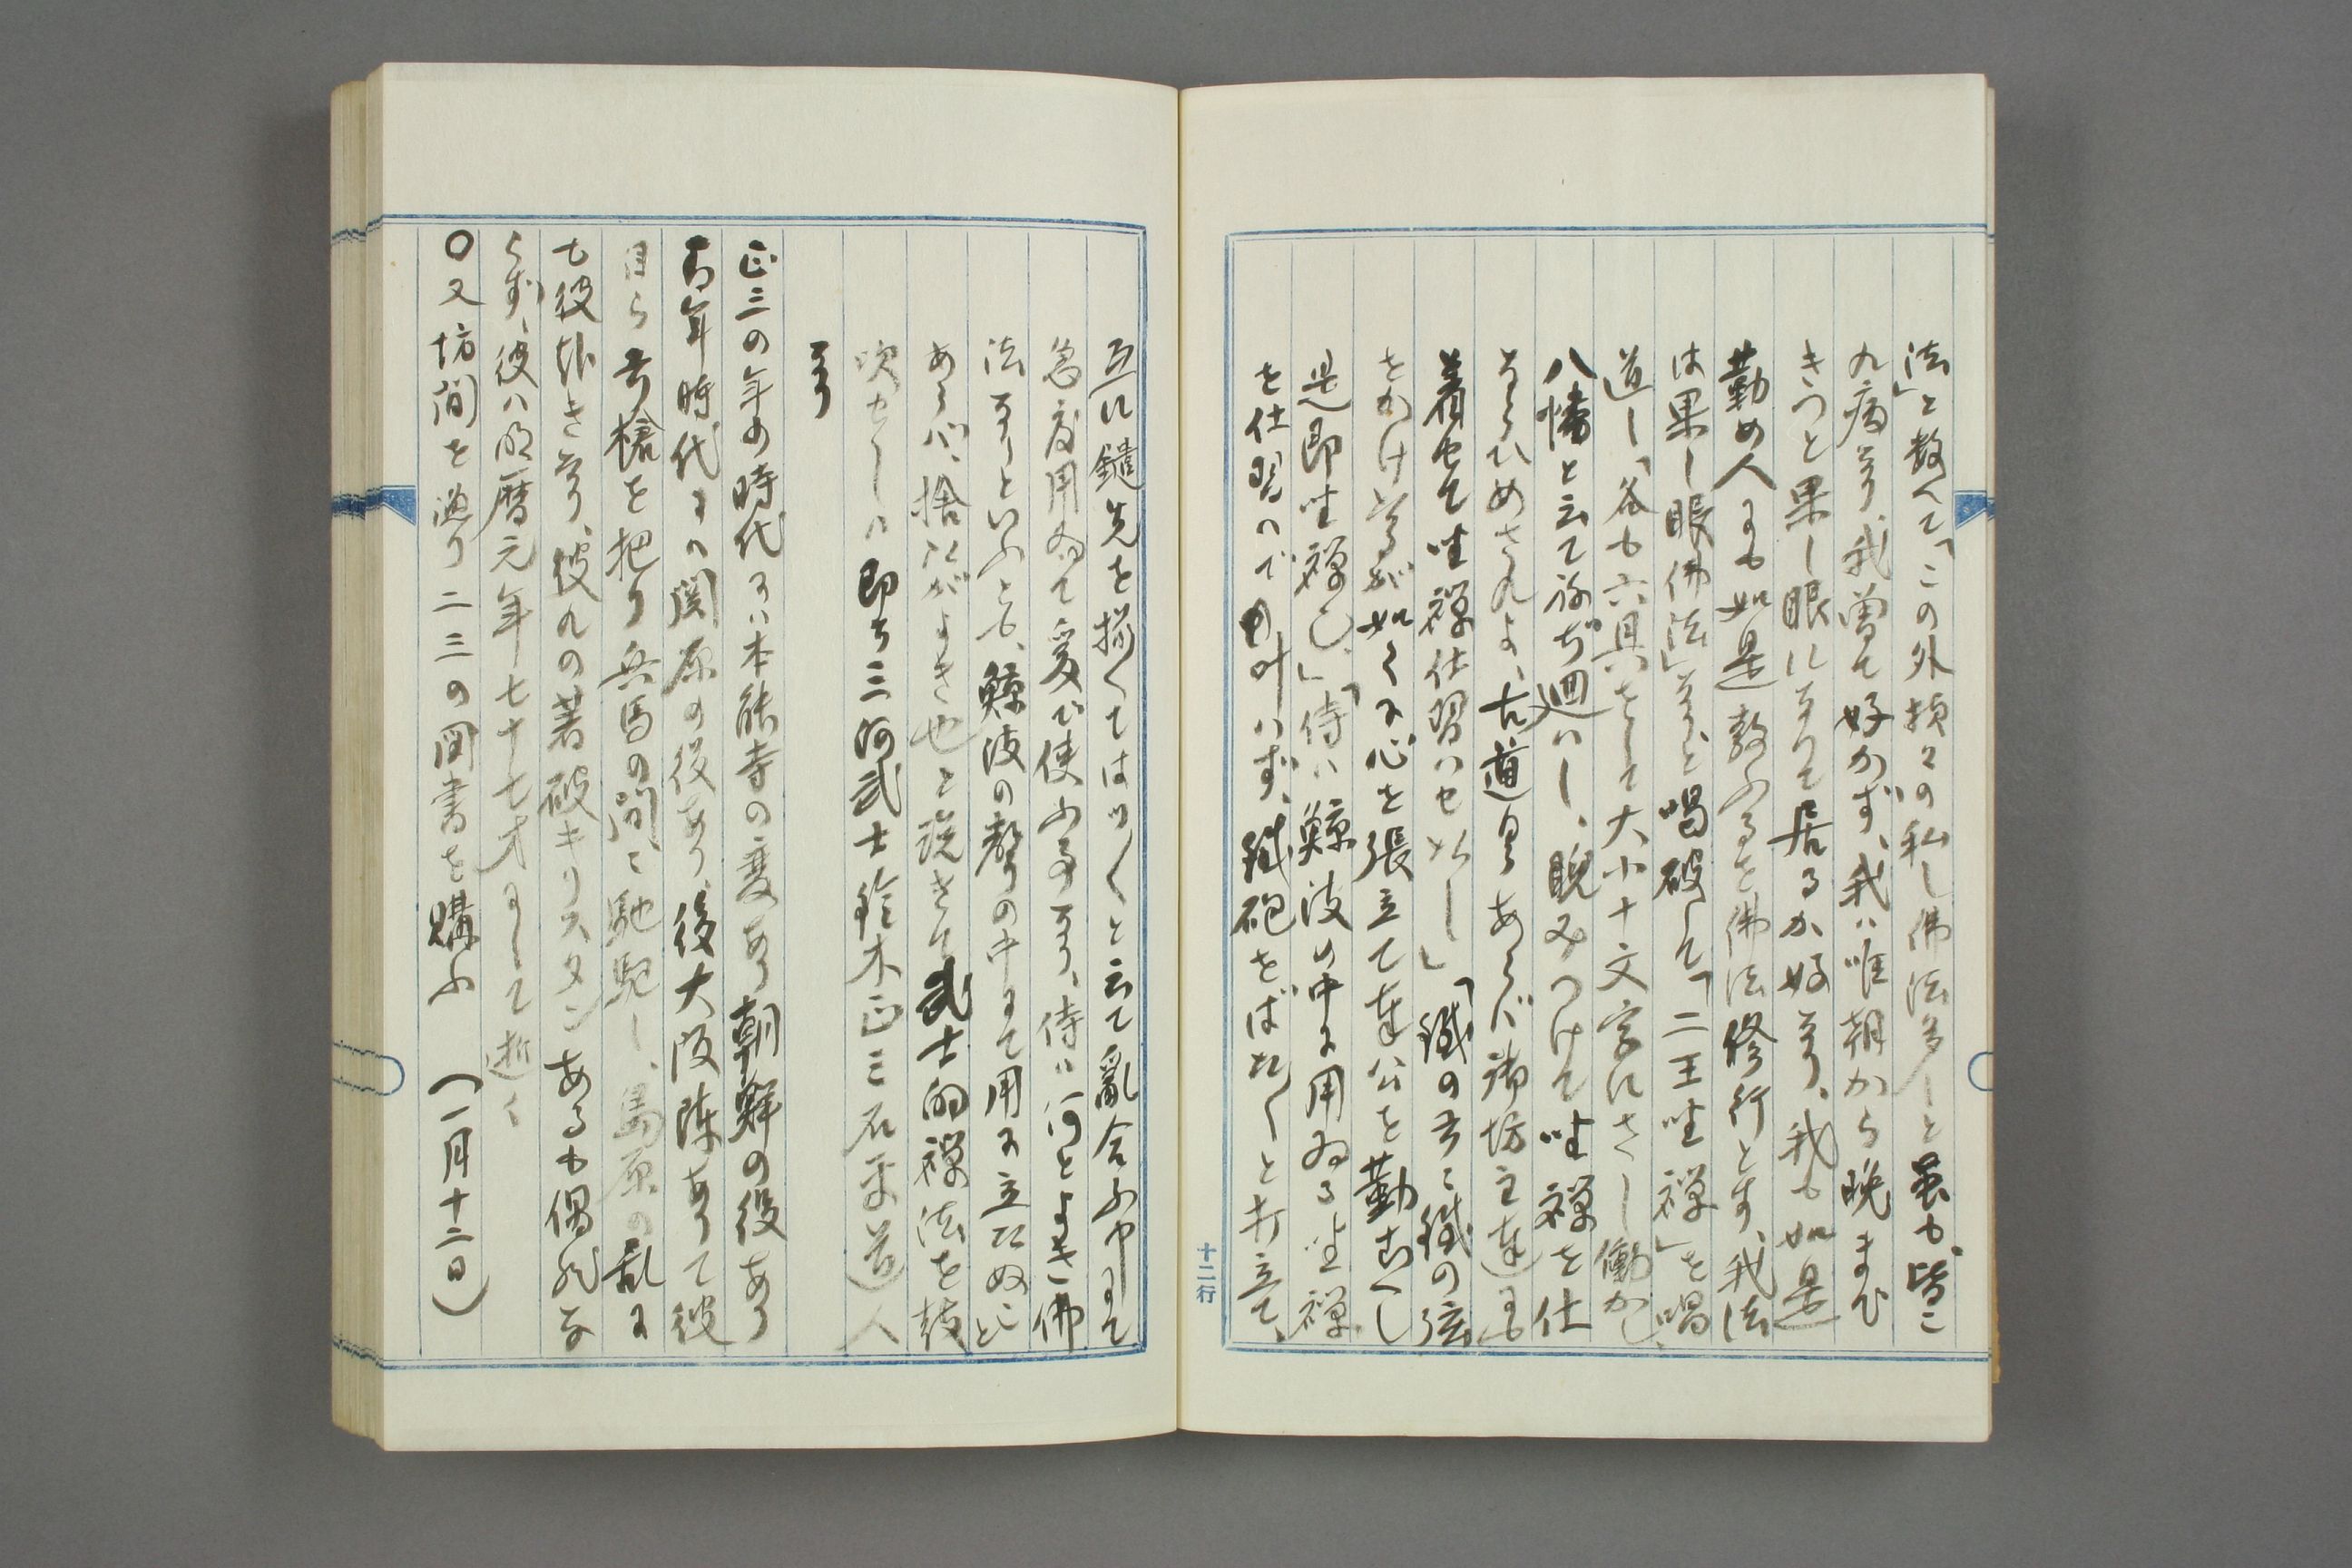 法」と教へて「この外様々の私し佛法多しと雖も、皆こ
れ病なり、我曽て好かず、我は唯朝から晩まで
きつと果し眼になりて居るか好なり、我も如是
勤め人にも如是教ふるを佛法修行とす、我法
は果し眼佛法」なりと喝破して「二王坐禅」を唱
道し「各も六具をして大小十文字にさし働かし
八幡と云て祢ぢ廻はし、睨みつけて坐禅を仕
ならひめされよ、古道具あらば諸坊主達にも
着せて坐禅仕習はせ度し」「鐡の弓に鐡の弦
をかけなるが如くに心を張立て奉公を勤むへし
是即坐禅也」「侍は鯨波の中に用ゐる坐禅
を仕習はで叶はず、鐡砲をばたくと打立て、
十二行
互に鑓先を揃へてはツくと云て亂合ふ中にて
急度用ゐて爰で使ふ事なり、侍は何とよき佛
法なりといふとも、鯨波の聲の中にて用に立たぬこと
あらば、捨たがよき也と説きて武士的禅法を鼓
吹せしは即ち三河武士鈴木正三石平道人
なり
正三の幼年の時代には本能寺の変あり朝鮮の役あり
青年時代には関原の役あり、後大阪陣ありて彼
自ら弓槍を把り兵馬の間に馳駆し、島原の乱に
も彼作き
なり、彼れの著破キリスタンあるも偶然な
らず、彼は明暦元年七十七才にして逝く
〇又坊間を漁り二三の図書を購ふ（一月十二日）